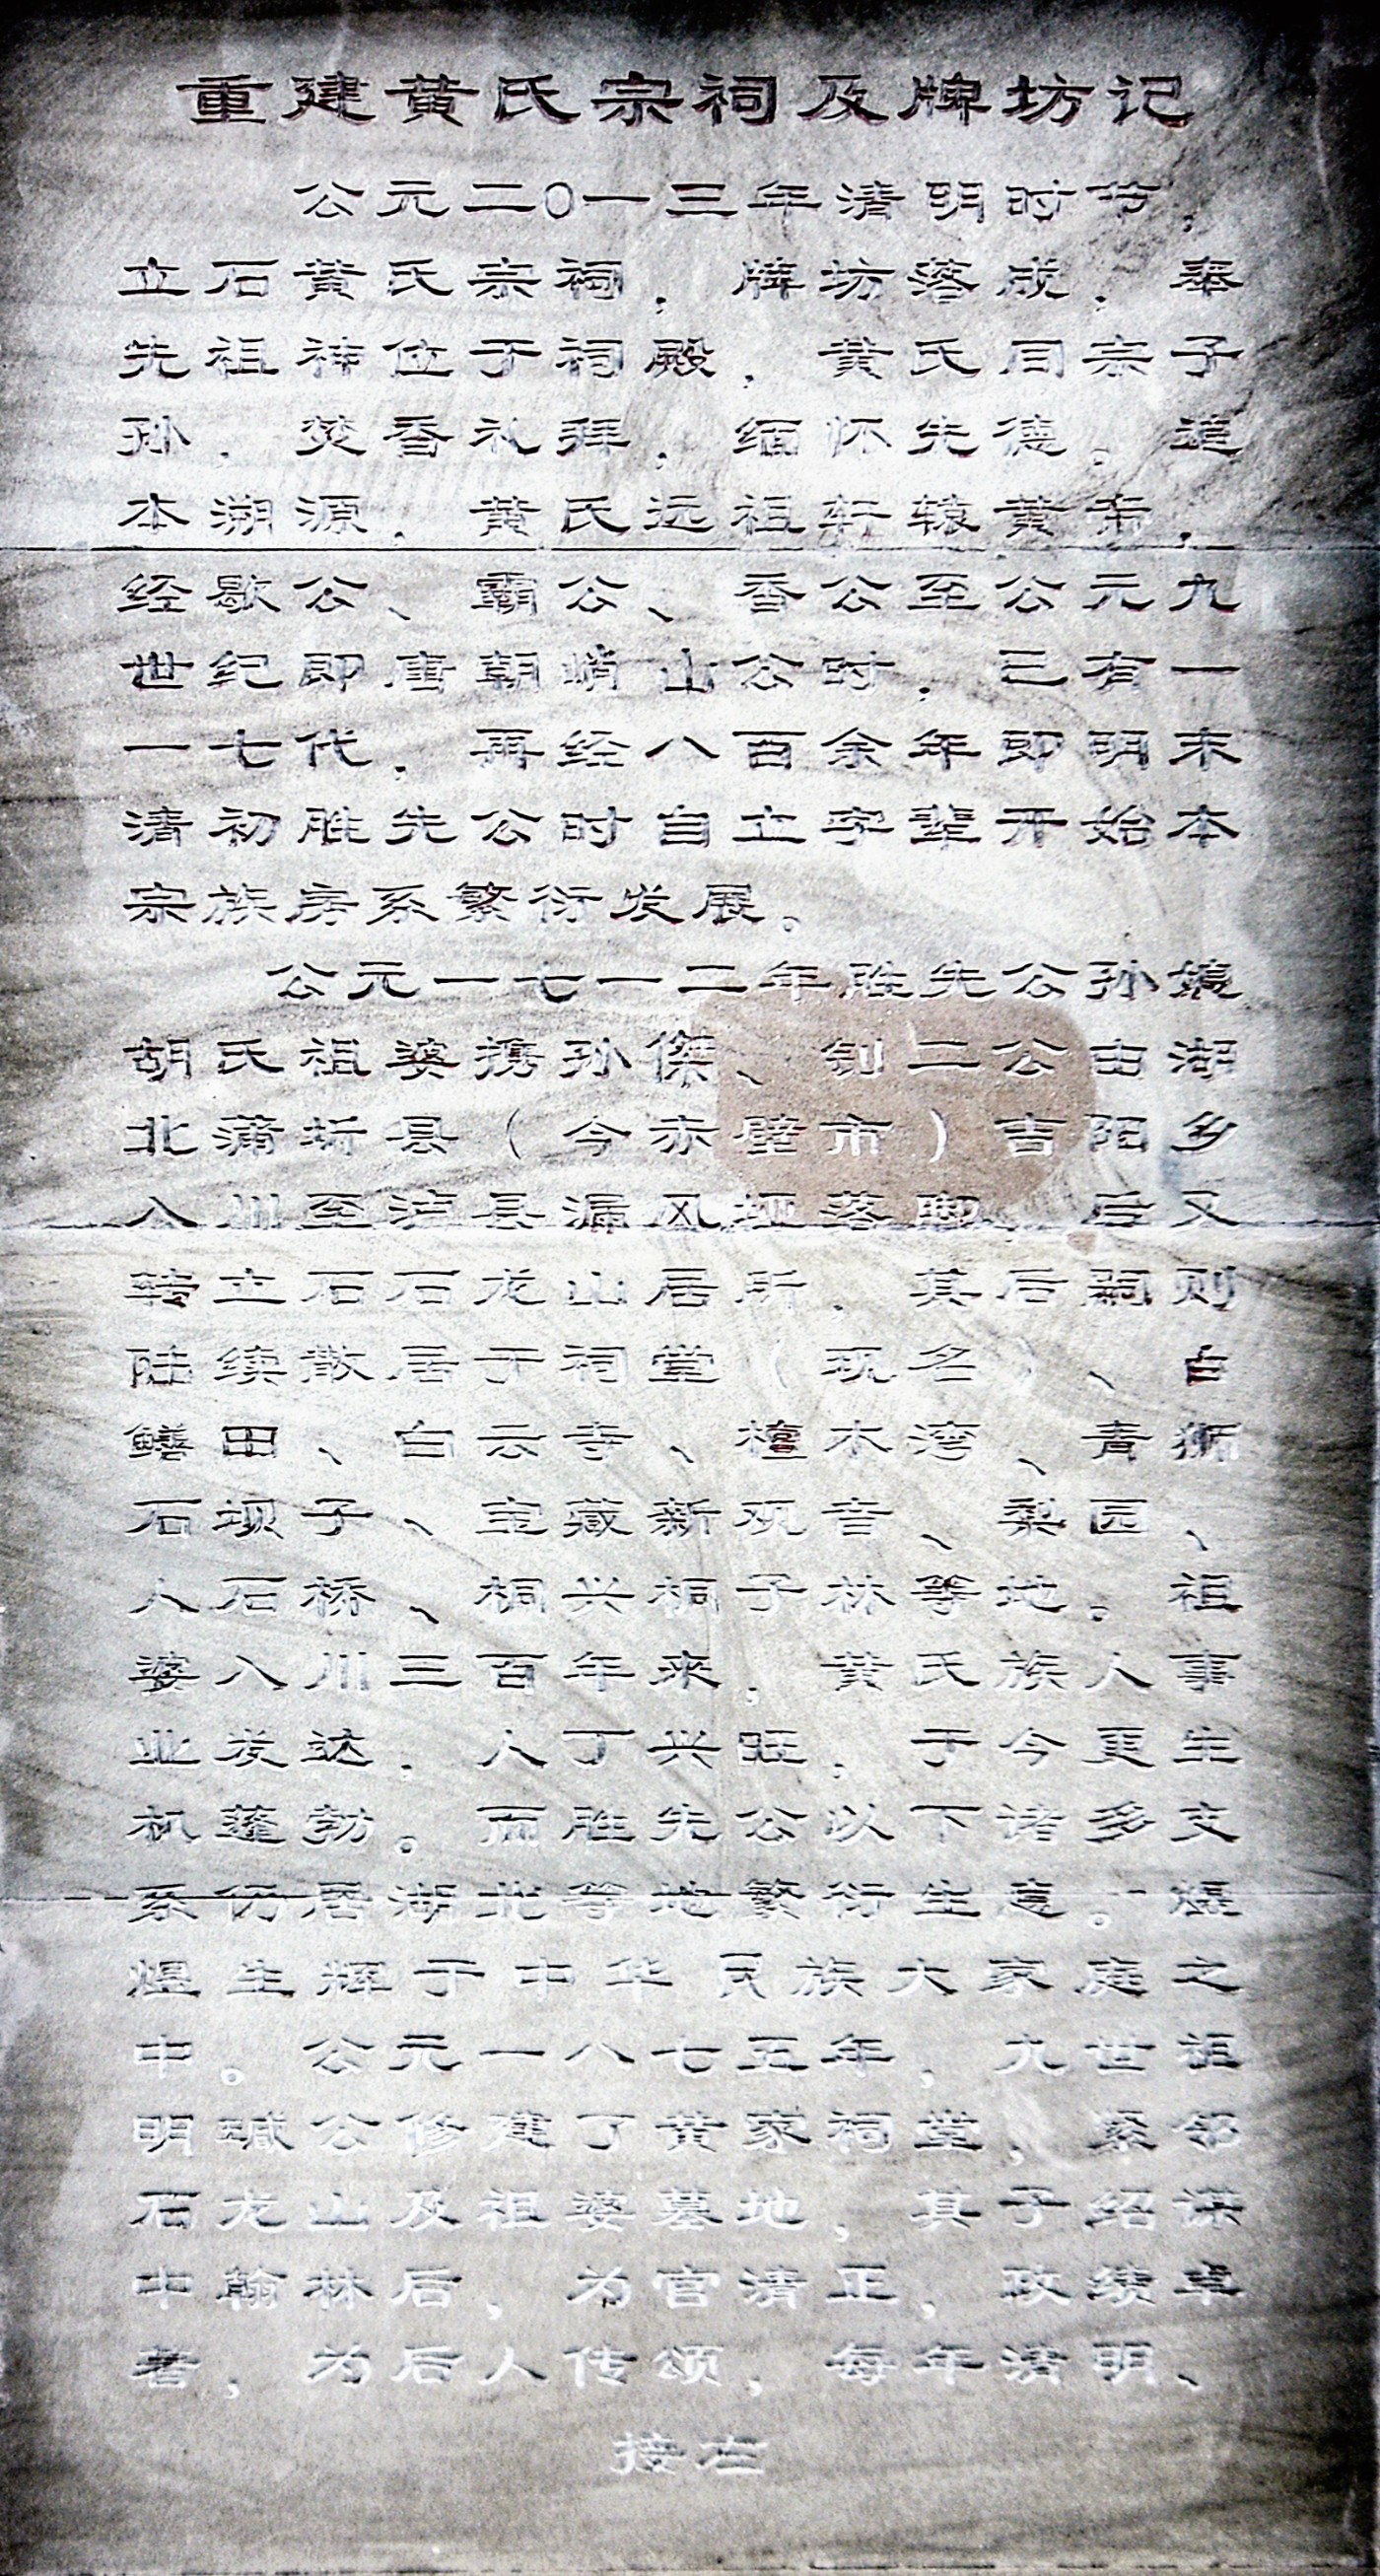 重建黄氏宗祠及牌坊记
公元二〇一三年清明时节，
立石黄氏宗祠，牌坊落成，奉
先祖神位于祠殿，黄氏同宗子
孙，焚香礼拜，缅怀先德。追
本溯源，黄氏远祖轩辕黄帝，
经歇公、霸公、香公至公元九
世纪即唐朝峭山公时，已有一
一七代，再经八百余年即明末
清初胜先公时自立字辈开始本
宗族房系繁衍发展。
公元一七一二年胜先公孙媳
胡氏祖婆携孙傑、钊二公由湖
北蒲圻县（今赤壁市）吉阳乡
入川至泸县漏风垭落脚，后又
转立石石龙山居所，其后嗣则
陆续散居于祠堂（现名）、白
鳝田、白云寺、檀木湾、青狮
石坝子、宝藏新观音、梨园、
人石桥、桐兴桐子林等地。祖
婆入川三百年来，黄氏族人事
业发达，人丁兴旺，于今更生
机蓬勃。而胜先公以下诸多支
系仍居湖北等地繁衍生息。煜
煜生辉于中华民族大家庭之
中。公元一八七五年，九世祖
明碱公修建了黄家祠堂，紧邻
石龙山及祖婆墓地，其子绍谋
中翰林后，为官清正，政绩卓
著，为后人传颂，每年清明、
接左